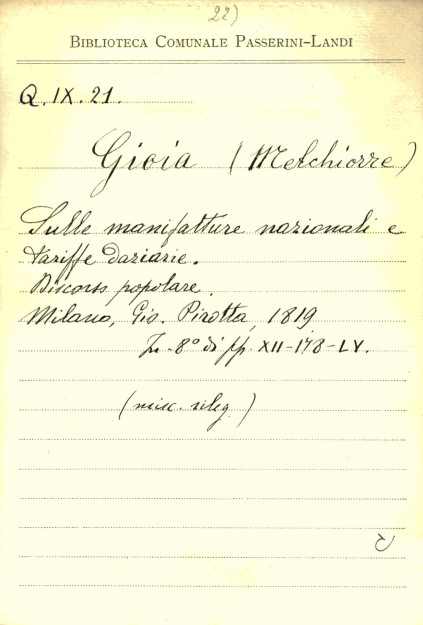 22)
BIBLIOTECA COMUNALE PASSERINI-LANDI
Q. IX. 21.
Gioia (Melchiorre)
Sulle manifatture nazionali e
tariffe daziarie.
Discorso popolare.
Milano, Gio. Pirotta, 1819
In-8° di pp. XII-178-LV.
(misc. rileg.)